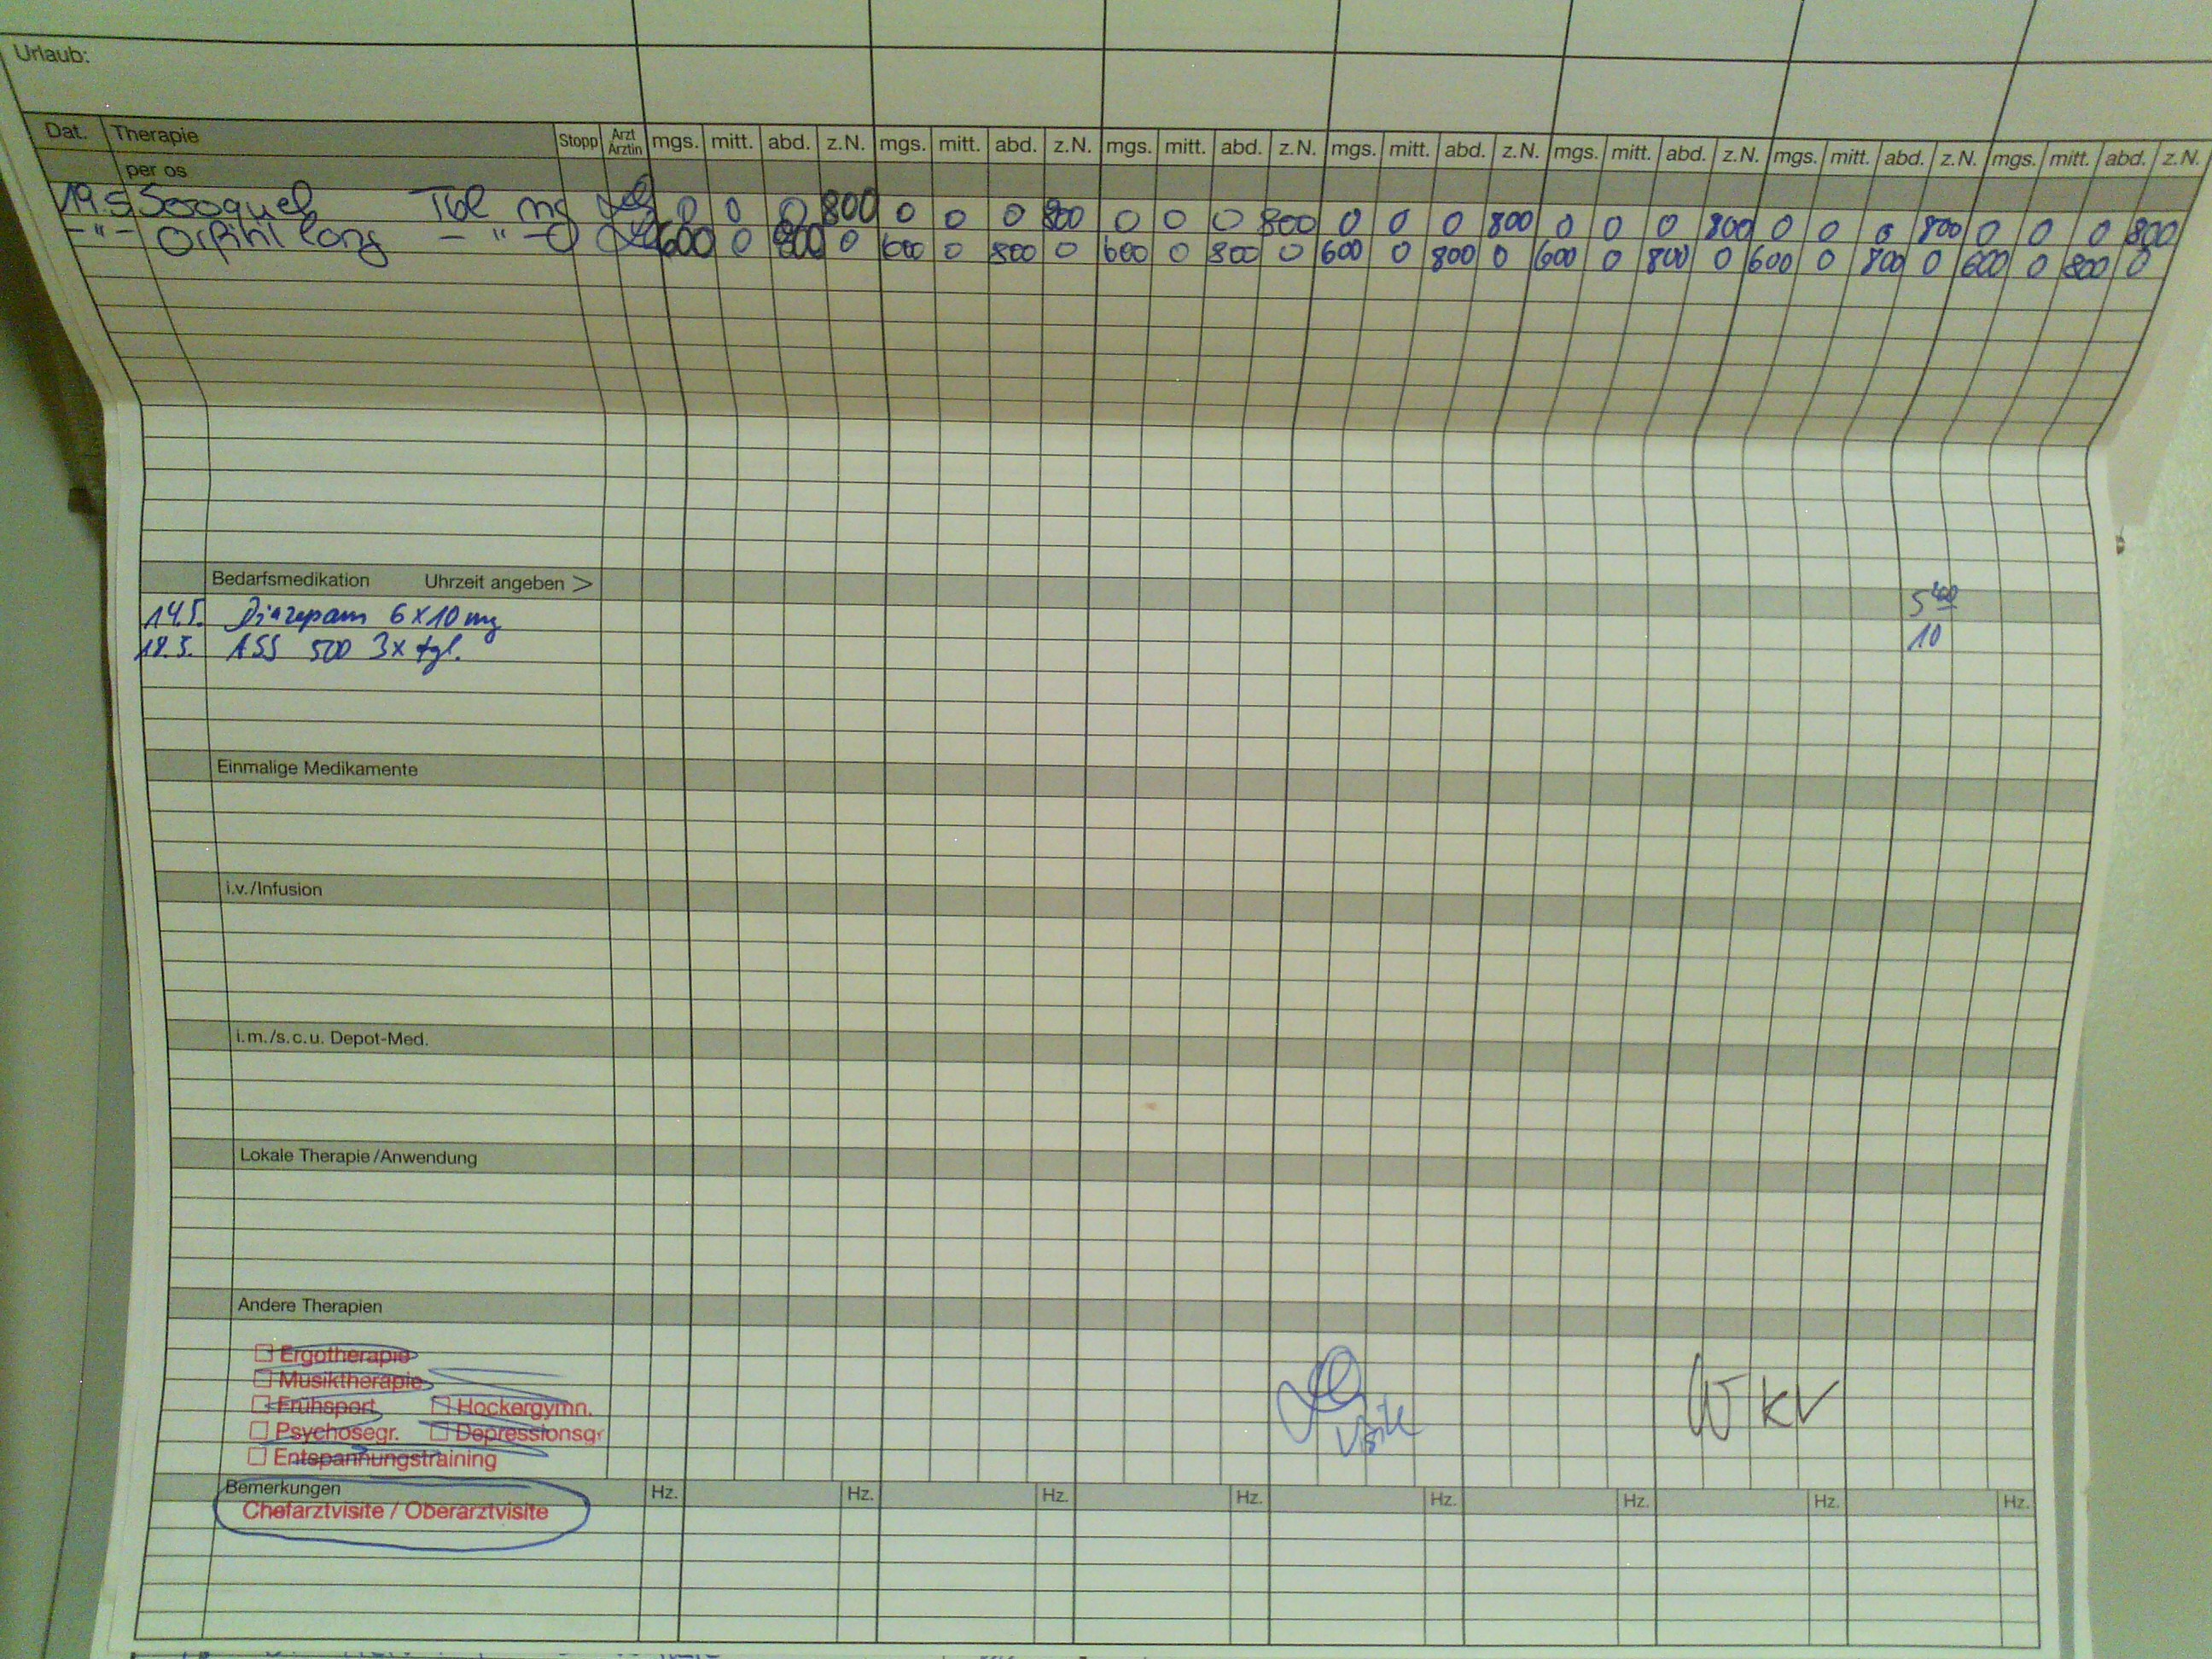 Urlaub:
Dat. Therapie Stopp Arzt Ärztin mgs. mitt. abd. z.N. mgs. mitt. abd. z.N. mgs. mitt. abd. z.N. mgs. mitt. abd. z.N. mgs. mitt. abd. z.N. mgs. mitt. abd. z.N. mgs. mitt. abd. z.N.
per os
19.5 Seroquel Tbl mg 0 0 0 800 0 0 0 800 0 0 0 800 0 0 0 800 0 0 0 800 0 0 0 800 0 0 0 800
-"- Orfiril long -"- 600 0 800 0 600 0 800 0 600 0 800 0 600 0 800 0 600 0 800 0 600 0 800 0 600 0 800 0
Bedarfsmedikation Uhrzeit angeben >
14.5. Diazepam 6x10 mg
18.5. ASS 500 3x tgl. 10
Einmalige Medikamente
i.v./Infusion
i.m./s.c.u. Depot-Med.
Lokale Therapie/Anwendung
Andere Therapien
Ergotherapie
Musiktherapie
Frühsport Hockergymn.
Psychosegr. Depressionsgr
Entspannungstraining
Visite
KV
Bemerkungen Hz. Hz. Hz. Hz. Hz. Hz. Hz. Hz.
Chefarztvisite / Oberarztvisite